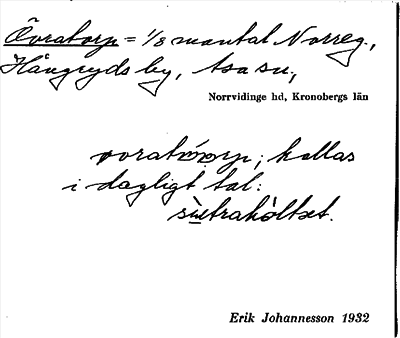 Övratorp = 1/8 mantal Norreg.,
Hångryds by, Asa sn.,
Norrvidinge hd, Kronobergs län
kallas
i dagligt tal:
Erik Johannesson 1932